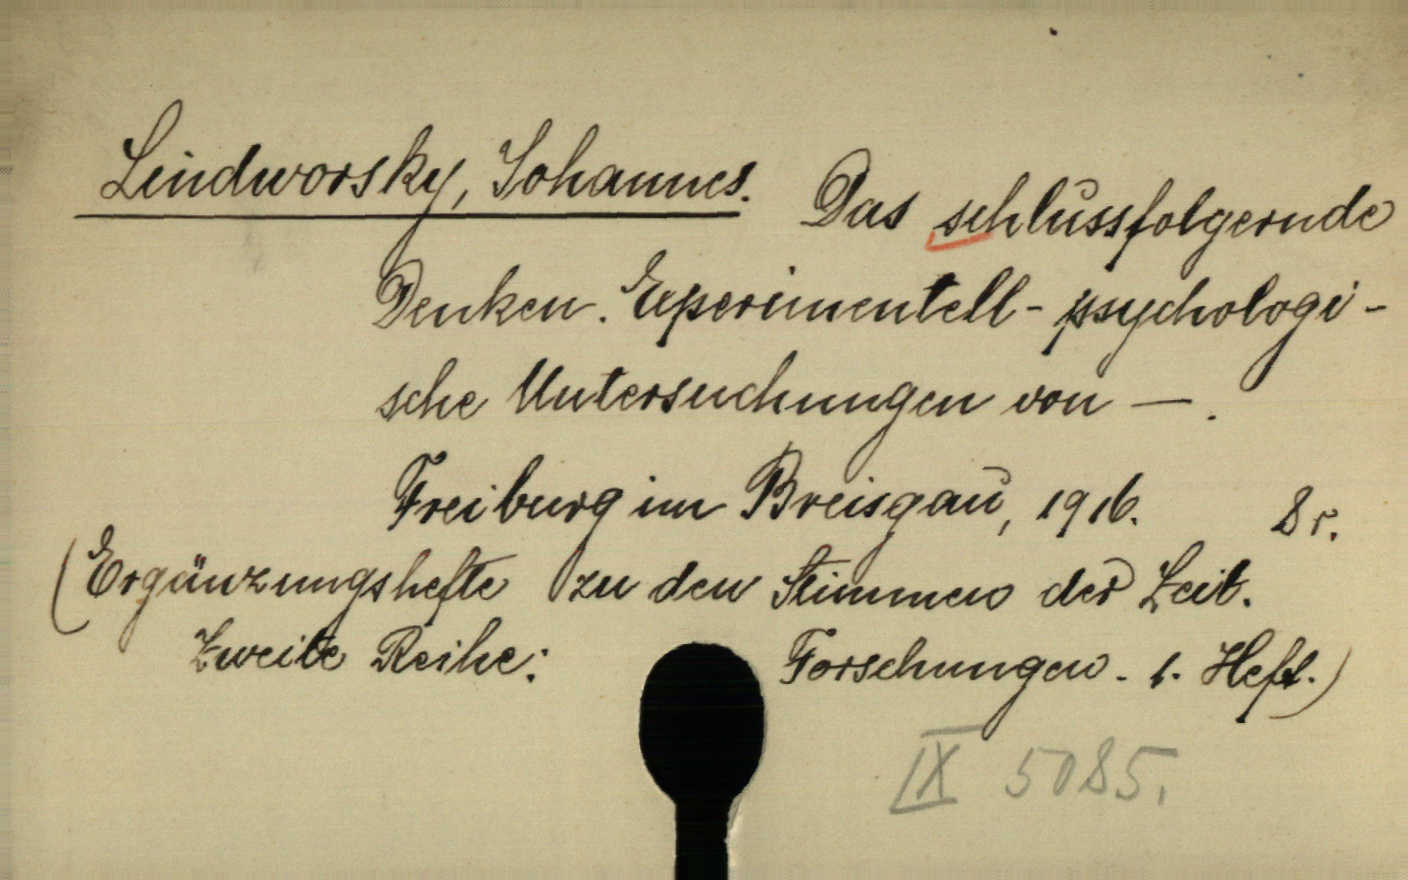 Lindworsky, Johannes. Das schlussfolgernde
Denken. Experimentell-psychologi-
sche Untersuchungen von —.
Freiburg im Breisgau, 1916. 8r.
(Ergänzungshefte zu den Stimmen der Zeit.
Zweite Reihe: Forschungen. 1. Heft.)
IX 5085.